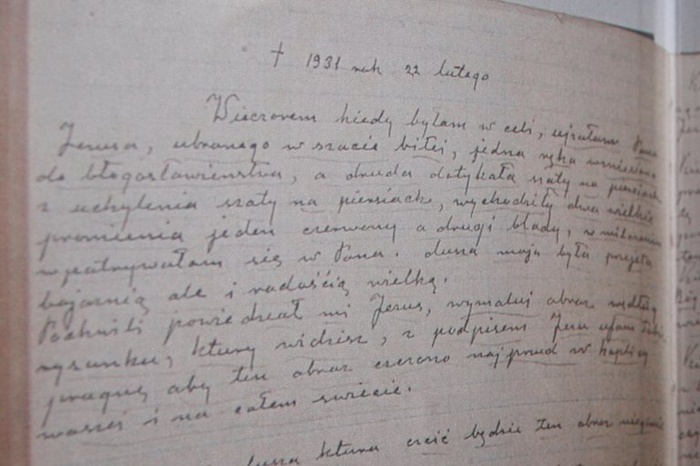 † 1931 rok 22 lutego
Wieczorem kiedy byłam w celi, ujrzałam Pana
Jezusa, ubranego w szacie białej, jedna ręka wzniesiona
do błogosławieństwa, a druga dotykała szaty na piersiach
z uchylenia szaty na piersiach, wychodziły dwa wielkie
promienia jeden czerwony a drugi blady, w milczeniu
wpatrywałam się w Pana. dusza moja była przejęta
bojaźnią ale i radością wielką.
Po chwili powiedział mi Jezus, wymaluj obraz według
rysunku, który widzisz, z podpisem Jezu ufam Tobie.
pragnę aby ten obraz czczono najprzud w kaplicy
waszej i na całem świecie.
dusza która czcić będzie ten obraz